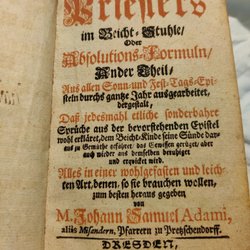 Priesters
im Beicht-Stuhle/
Oder
Absolutions-Formuln/
Ander Theil/
Aus allen Sonn-und Fest-Tags-Epi-
steln durchs gantze Jahr ausgearbeitet,
dergestalt,
Daß jedesmahl etliche sonderbahre
Sprüche aus der bevorstehenden Epistel
wohl erkläret, dem Beicht-Kinde seine Sünde dar-
aus zu Gemüthe geführet, das Gewissen gerüget, aber
auch wieder aus demselben beruhiget
und erqvicket wird.
Alles in einer wohlgefasten und leich-
ten Art, denen, so sie brauchen wollen,
zum besten heraus gegeben
von
M. Johann Samuel Adami,
aliàs Misandern, Pfarrern zu Pretzschendorff.
DRESDEN,